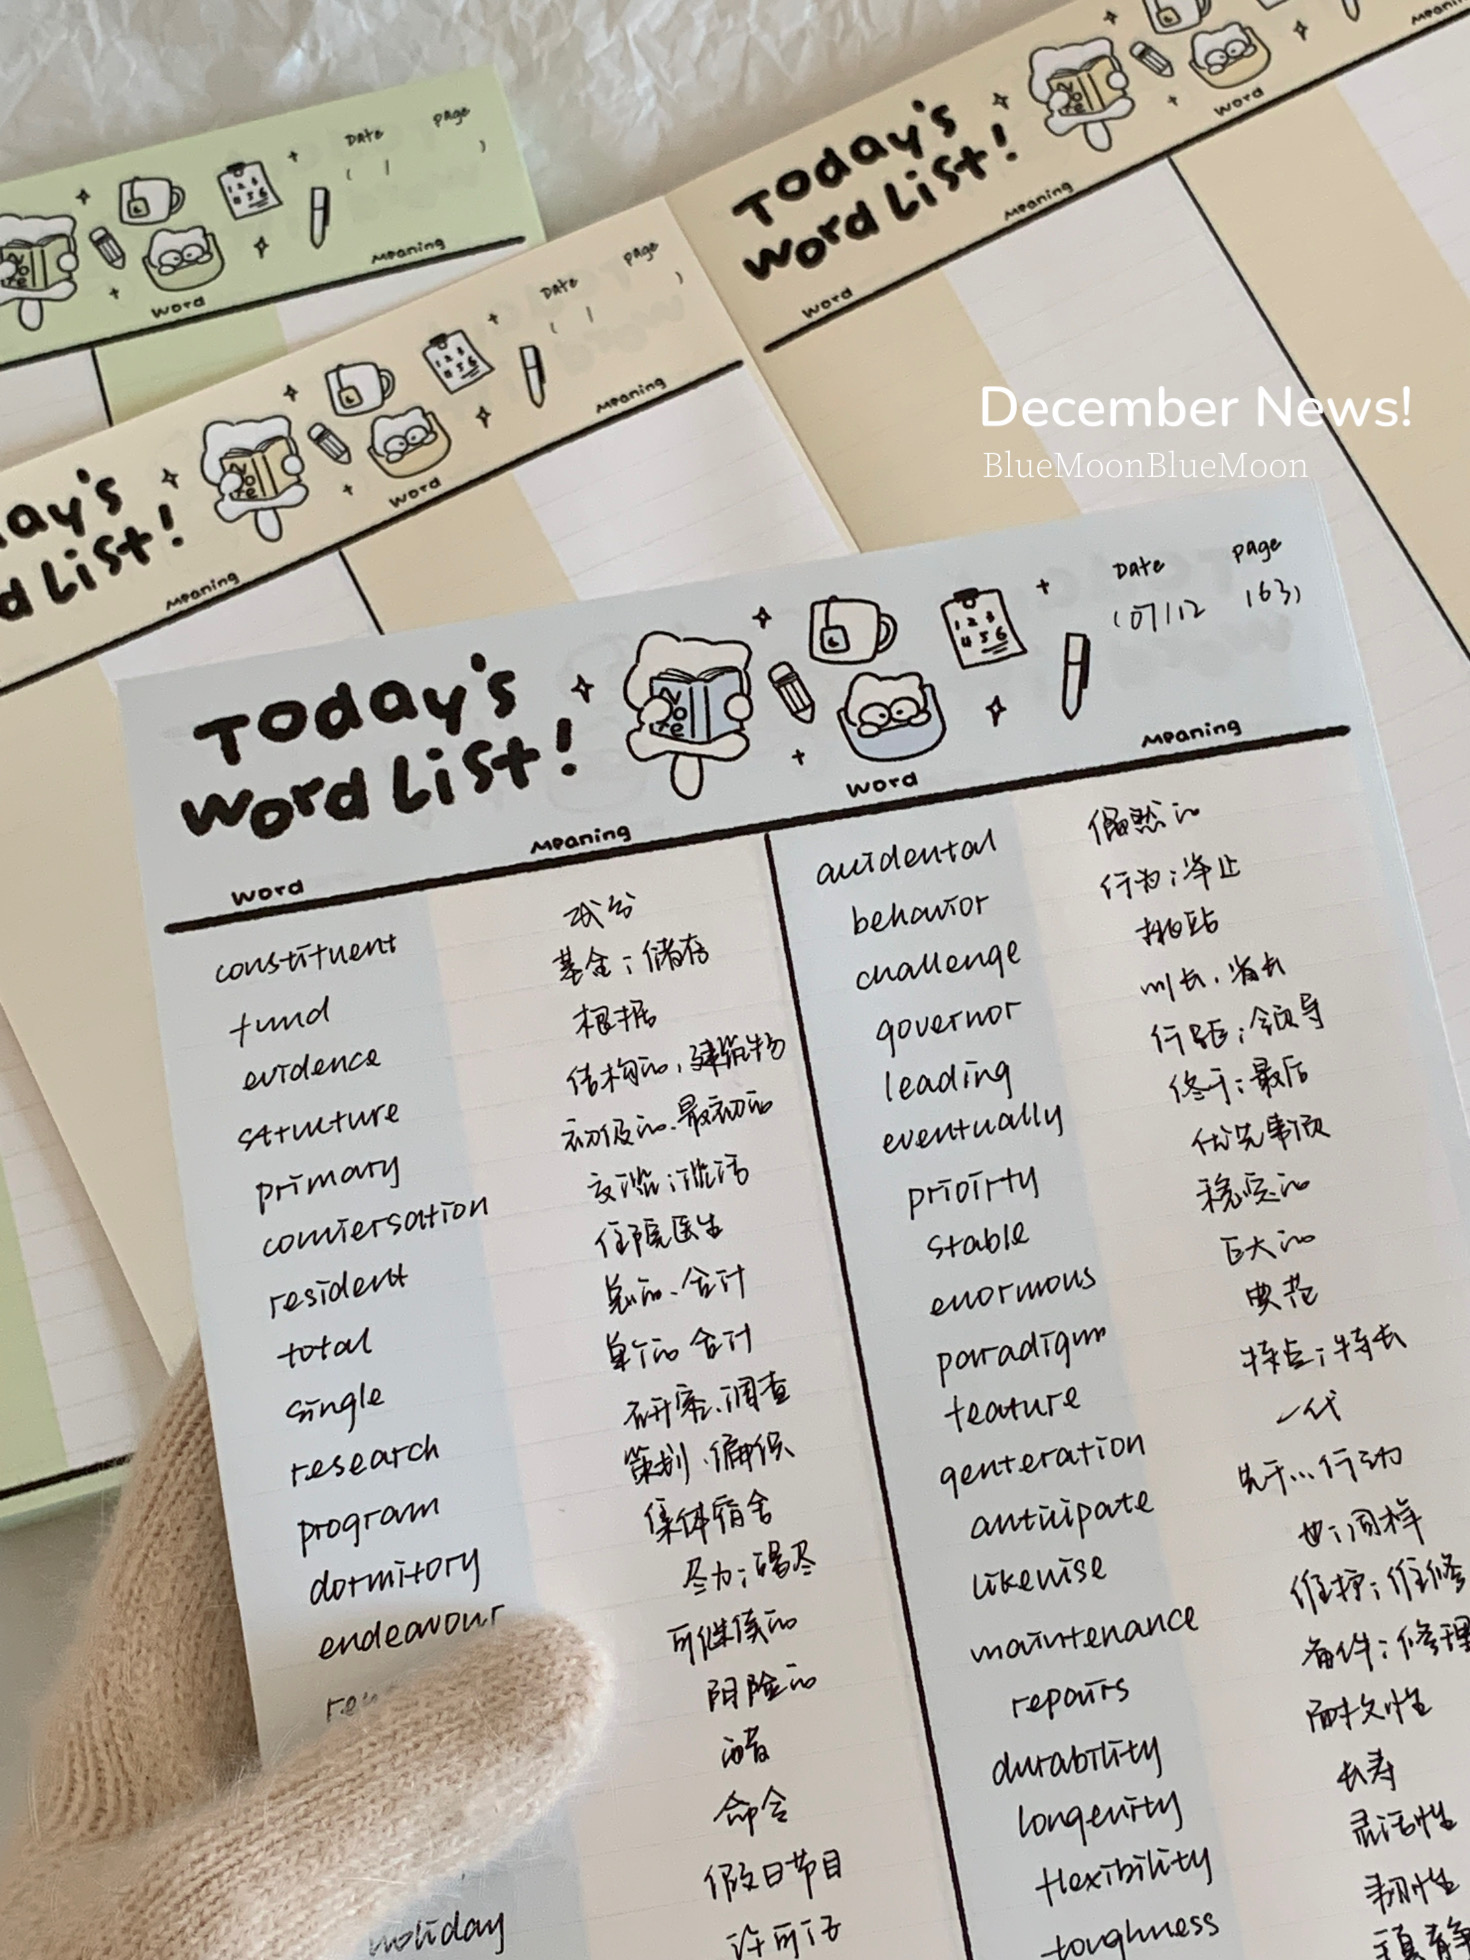 Date page
Meaning
word
Date page
Meaning
word
Meaning
Today's
word List!
word
Meaning
December News!
BlueMoonBlueMoon
Date page
(07/12 (63)
Today's
word List!
Note
1 2 3
4 5 6
Meaning
word
Meaning
word
constituent 成分
fund 基金；储存
evidence 根据
structure 结构的，建筑物
primary 初级的、最初的
conversation 交谈；谈话
resident 住院医生
total 总的、合计
single 单个的 合计
research 研究、调查
program 策划、编织
dormitory 集体宿舍
endeavour 尽力；竭尽
可继续的
阴险的
命令
假日节目
holiday 许可证
accidental 偶然的
behavior 行为；举止
challenge 挑战
governor 州长、省长
leading 行距；领导
eventually 终于；最后
prioirty 优先事项
stable 稳定的
enormous 巨大的
paradigm 典范
feature 特点；特长
generation 一代
anticipate 先于...行动
likewise 也；同样
maintenance 维护；维修
repairs 备件；修理
durability 耐久性
longevity 长寿
flexibility 灵活性
toughness 韧性